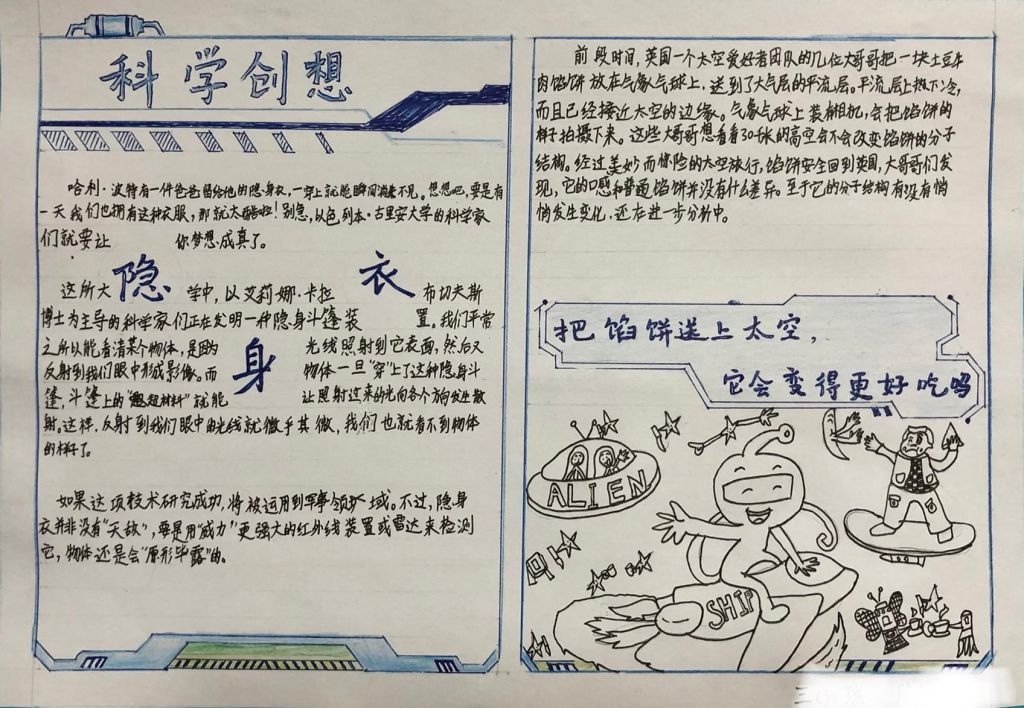 科学创想
哈利·波特有一件爸爸留给他的隐身衣,一穿上就能瞬间消失不见。想想吧,要是有
一天我们也拥有这种衣服,那就太酷啦!别急,以色列本·古里安大学的科学家
们就要让 你梦想成真了。
隐 身 衣
这所大 学中,以艾莉娜·卡拉 布切夫斯
博士为主导的科学家们正在发明一种隐身斗篷装 置。我们平常
之所以能看清某个物体,是因为 光线照射到它表面,然后又
反射到我们眼中形成影像。而 物体一旦“穿”上了这种隐身斗
篷,斗篷上的“超材料”就能 让照射过来的光向各个方向发生散
射。这样,反射到我们眼中的光线就微乎其微,我们也就看不到物体
的样子了。
如果这项技术研究成功,将被运用到军事领域。不过,隐身
衣并非没有“天敌”,要是用“威力”更强大的红外线装置或雷达来检测
它,物体还是会“原形毕露”的。
前段时间,英国一个太空爱好者团队的几位大哥哥把一块土豆牛
肉馅饼放在气象气球上,送到了大气层的平流层。平流层上热下冷,
而且已经接近太空的边缘。气象气球上装有相机,会把馅饼的
样子拍摄下来。这些大哥哥想看看30千米的高空会不会改变馅饼的分子
结构。经过美妙而惊险的太空旅行,馅饼安全回到英国,大哥哥们发
现,它的口感和普通馅饼并没有什么差异。至于它的分子结构有没有悄
悄发生变化,还在进一步分析中。
把馅饼送上太空,
它会变得更好吃吗
ALIEN
SHIP